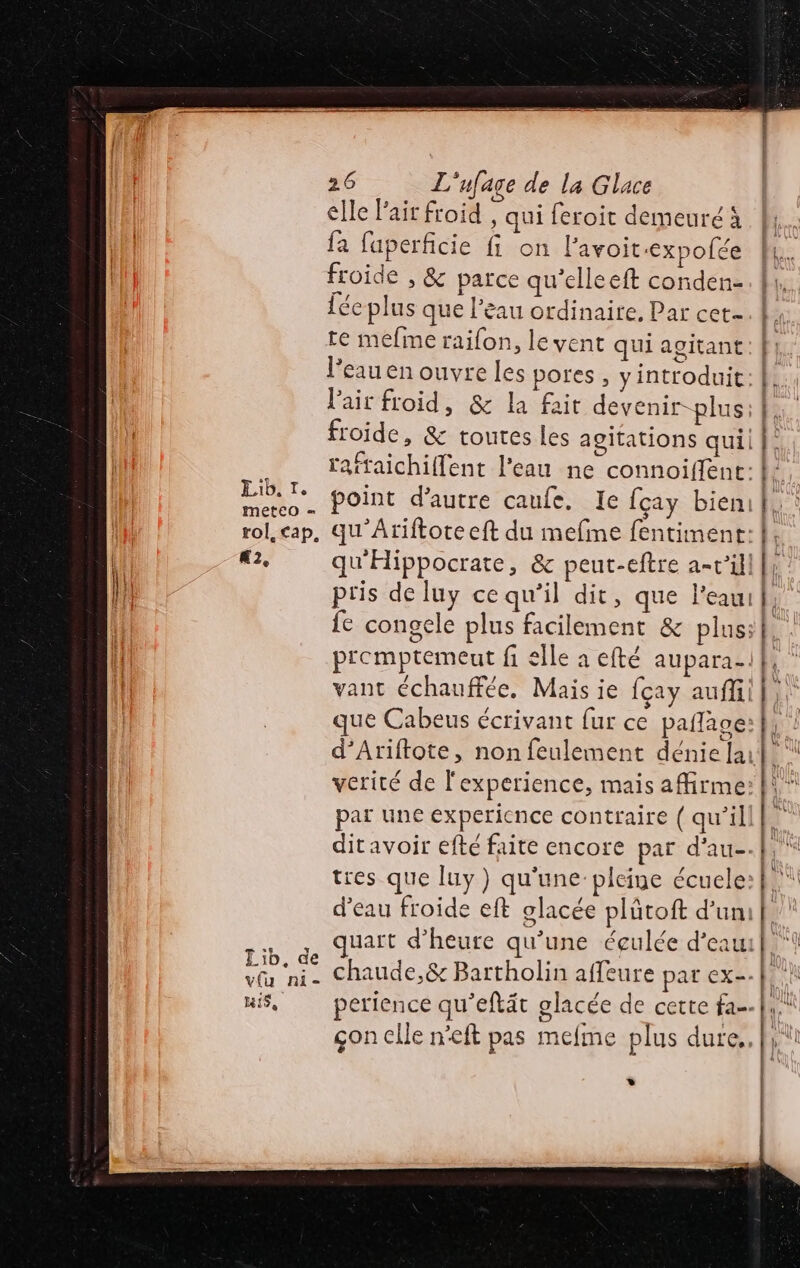 26 L'uſage de la Glace
elle l'air froid , qui feroit demeuré à
ſa ſuperficie ſi on l'avoit expoſée
froide , & parce qu'elle eſt conden-
ſée plus que l'eau ordinaire. Par cet-
te meſme raiſon, le vent qui agitant
l'eau en ouvre les pores , y introduit
l'air froid, & la fait devenir plus
froide, & toutes les agitations qui
raffraichiſſent l'eau ne connoiſſent
point d'autre cauſe. Ie ſçay bien
qu'Ariſtote eſt du meſme ſentiment
qu'Hippocrate, & peut-eſtre a-t'il
pris de luy ce qu'il dit, que l'eau
ſe congele plus facilement & plus
prcmptemeut ſi elle a eſté aupara-
vant échauffée. Mais ie ſçay auſſi
que Cabeus écrivant ſur ce paſſage
d'Ariſtote, non ſeulement dénie la
verité de l'experience, mais affirme
par une experience contraire ( qu'il
dit avoir eſté faite encore par d'au-
tres que luy ) qu'une pleine écuele
d'eau froide eſt glacée plûtoſt d'un
quart d'heure qu'une éculée d'eau
chaude,& Bartholin aſſeure par ex-
perience qu'eſtãt glacée de cette fa-
çon elle n'eſt pas meſme plus dure,
Lib. 1.
meteo -
rol. cap.
12,
Lib. de
vſu ni-
uis,